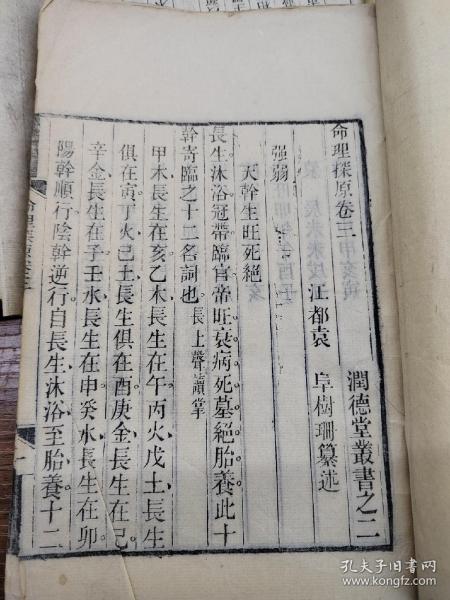 命理探原卷三
潤德堂叢書之二
江都袁 阜樹珊纂述
強弱
天幹生旺死絕
長生沐浴冠帶臨官帝旺衰病死墓絕胎養此十
幹寄臨之十二名詞也長上聲讀掌
甲木長生在亥乙木長生在午丙火戊土長生
俱在寅丁火己土長生俱在酉庚金長生在巳
辛金長生在子壬水長生在申癸水長生在卯
陽幹順行陰幹逆行自長生沐浴至胎養十二
孔夫子旧书网
www.kongfz.com